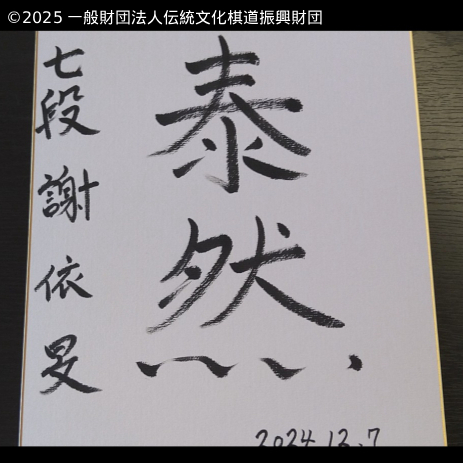 ©2025 一般財団法人伝統文化棋道振興財団
泰然
七段 謝依旻
2024.12.7